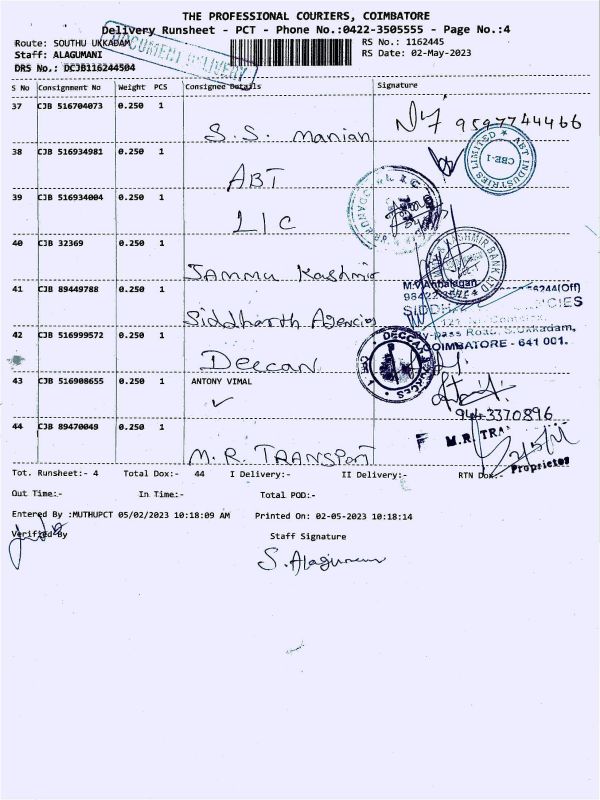 THE PROFESSIONAL COURIERS, COIMBATORE
Delivery Runsheet - PCT - Phone No.:0422-3505555 - Page No.:4
Route: SOUTHU UKKADAM
RS No.: 1162445
Staff: ALAGUMANI
RS Date: 02-May-2023
DRS No.: DCJB116244504
DOCUMENT DELIVERY
S No Consignment No Weight PCS Consignee Details Signature
37 CJB 516704073 0.250 1
S.S. Manian 9597744466
38 CJB 516934981 0.250 1
ABT
ABT INDUSTRIES LIMITED CBE-1
39 CJB 516934004 0.250 1
LIC
40 CJB 32369 0.250 1
Jammu Kashmir
KASHMIR BANK LTD
41 CJB 89449788 0.250 1
Siddharth Agencies
(Off)
-pass Road, S.Ukkadam,
COIMBATORE - 641 001.
42 CJB 516999572 0.250 1
Deccan
DECCAN
43 CJB 516908655 0.250 1 ANTONY VIMAL
✓
9443370896
44 CJB 89470049 0.250 1
M.R. TRANSPORT
M.R. TRA
Proprietor
Tot. Runsheet:- 4 Total Dox:- 44 I Delivery:- II Delivery:- RTN Dox:-
Out Time:- In Time:- Total POD:-
Entered By :MUTHUPCT 05/02/2023 10:18:09 AM Printed On: 02-05-2023 10:18:14
Verified By Staff Signature
S. Alaguman